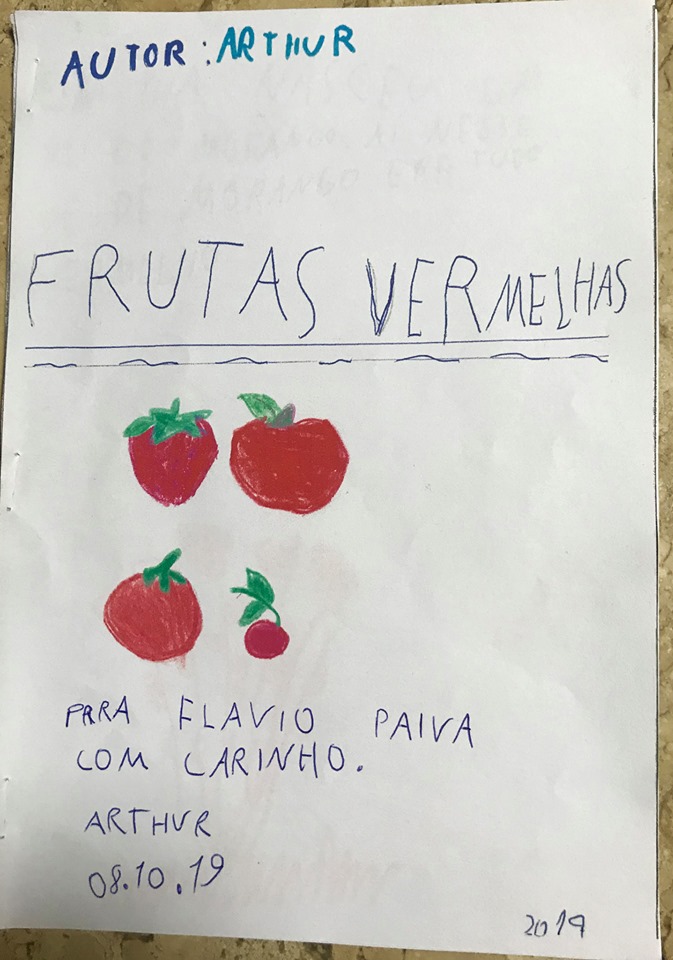 AUTOR: ARTHUR
FRUTAS VERMELHAS
PARA FLAVIO PAIVA
COM CARINHO.
ARTHUR
08.10.19
2019